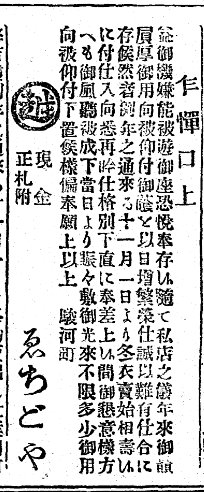 乍憚口上
益御機嫌能被遊御座恐悦奉存候隨て私店之儀年来御贔
屓厚御用向被仰付御蔭と以日増繁栄仕誠以難有仕合に
存候然者例年之通来る十一月一日より冬衣賣始相壽候
に付仕入向悉再吟仕格別下直に奉差上候間御懇意様方
へも御風聴被成下當日より賑々敷御光来不限多少御用
向被仰付下置候様偏奉願上以上
駿河町
越
現金
正札附
ゑちごや